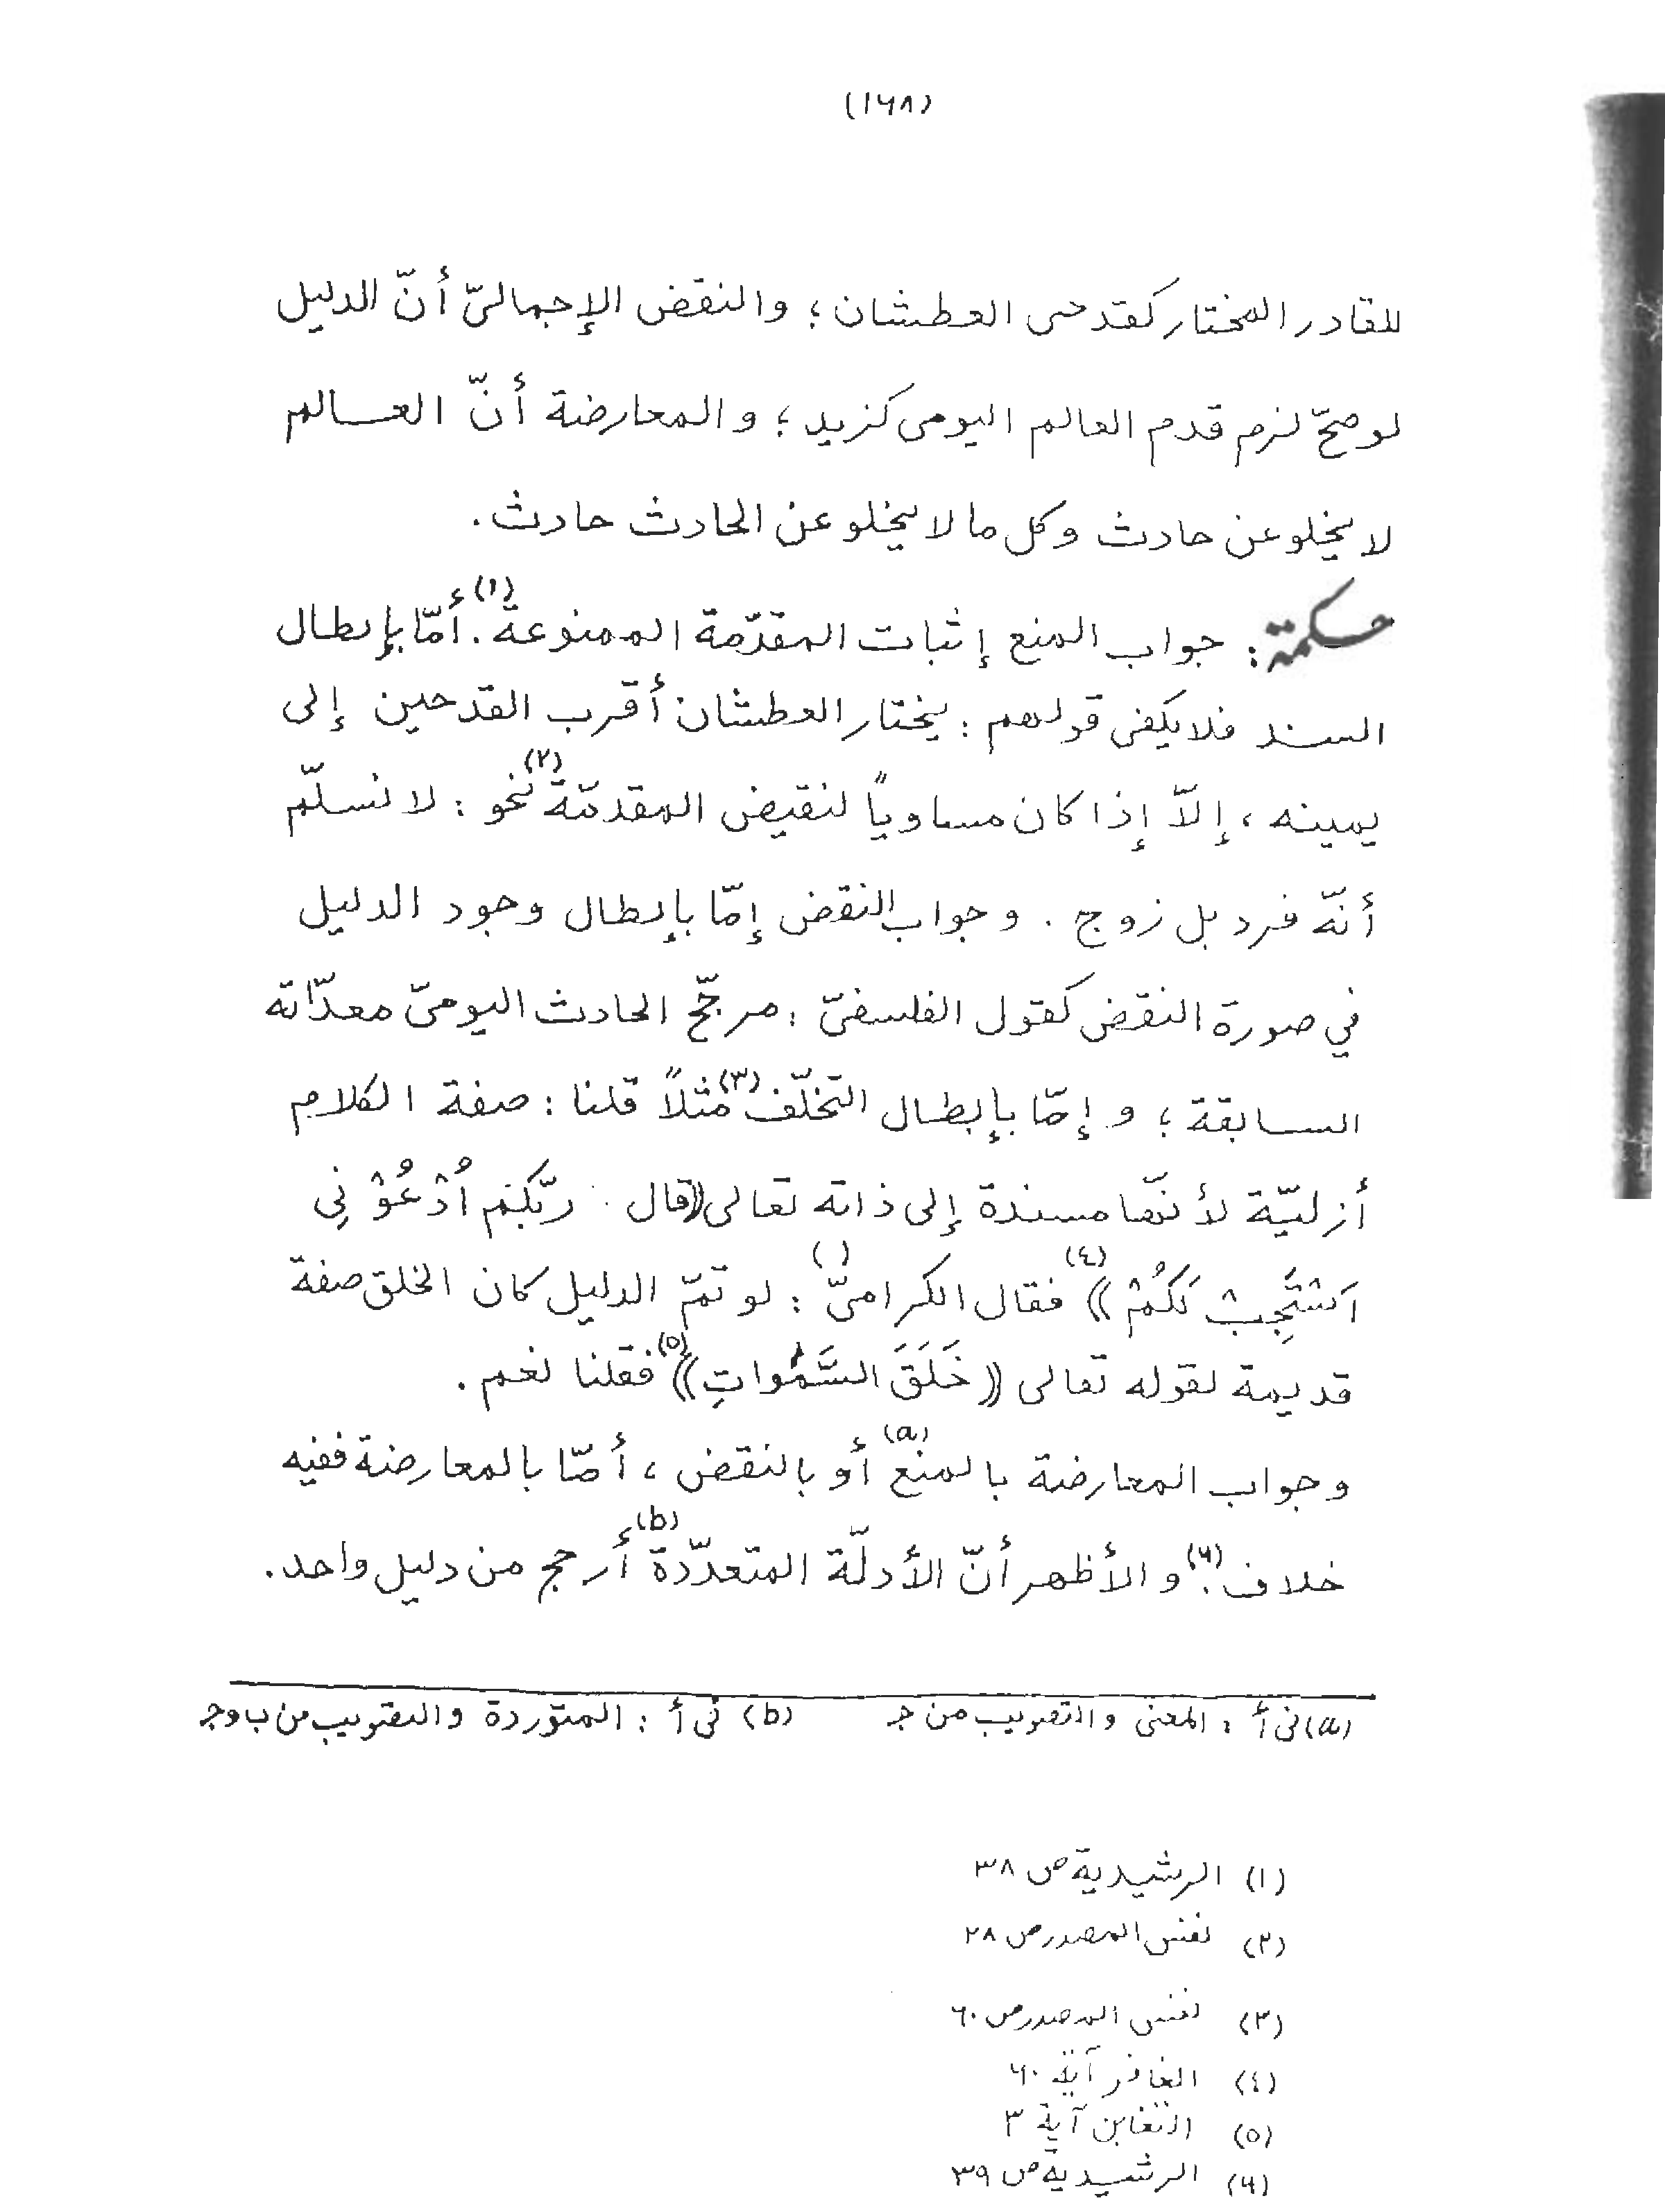 (١٦٨)
للقادر المختار كقدحى العطشان ؛ والنقض الإجماليّ أنّ الدليل
لو صحّ لزم قدم العالم اليومى كزيد ؛ و المعارضة أنّ العالم
لا يخلو عن حادث وكل ما لا يخلو عن الحادث حادث .
حكمة : جواب المنع إثبات المقدّمة الممنوعة (١) . أمّا بإبطال
السند فلا يكفى قولهم : يختار العطشان أقرب القدحين إلى
يمينه ، إلاّ إذا كان مساوياً لنقيض المقدمّة (٢) نحو : لا نسلّم
أنّه فرد بل زوج . و جواب النقض إمّا بإبطال وجود الدليل
في صورة النقض كقول الفلسفىّ : مرجّح الحادث اليومىّ معدّاته
السابقة ؛ و إمّا بإبطال التخلّف (٣) مثلاً قلنا : صفة الكلام
أزليّة لأنّها مسندة إلى ذاته تعالى ((قال ربّكم اُدْعُوْنِي
اَسْتَجِبْ لَكُمْ)) (٤) فقال الكرامىّ ( ) : لو تمّ الدليل كان الخلق صفة
قديمة لقوله تعالى ((خَلَقَ السَّمٰوات)) (٥) فقلنا نعم .
و جواب المعارضة بالمنع (a) أو بالنقض ، أمّا بالمعارضة ففيه
خلاف (٦) . و الأظهر أنّ الأدلّة المتعدّدة (b) أرجح من دليل واحد .
(a) فى أ : المعنى والتصويب من جـ (b) فى أ : المتوردة والتصويب من ب وجـ
(١) الرشيدية ص ٣٨
(٢) نفس المصدر ص ٢٨
(٣) نفس المصدر ص ٦٠
(٤) الغافر آية ٦٠
(٥) التغابن آية ٣
(٦) الرشيدية ص ٣٩